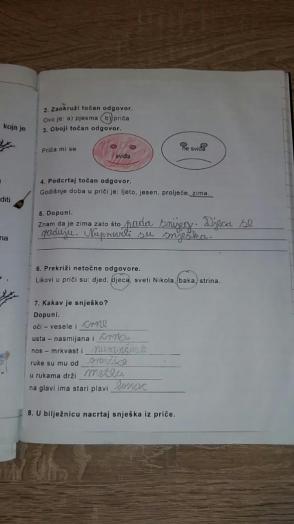 2. Zaokruži točan odgovor.
Ovo je: a) pjesma b) priča
3. Oboji točan odgovor.
Priča mi se
sviđa
ne sviđa
4. Podcrtaj točan odgovor.
Godišnje doba u priči je: ljeto, jesen, proljeće, zima.
5. Dopuni.
Znam da je zima zato što pada snijeg. Djeca se
raduju. Napravili su snješka.
6. Prekriži netočne odgovore.
Likovi u priči su: djed, djeca, sveti Nikola, baka, strina.
7. Kakav je snješko?
Dopuni.
oči – vesele i crne
usta – nasmijana i crna
nos – mrkvast i
ruke su mu od
u rukama drži metlu
na glavi ima stari plavi lonac
8. U bilježnicu nacrtaj snješka iz priče.
koja je
diti
na